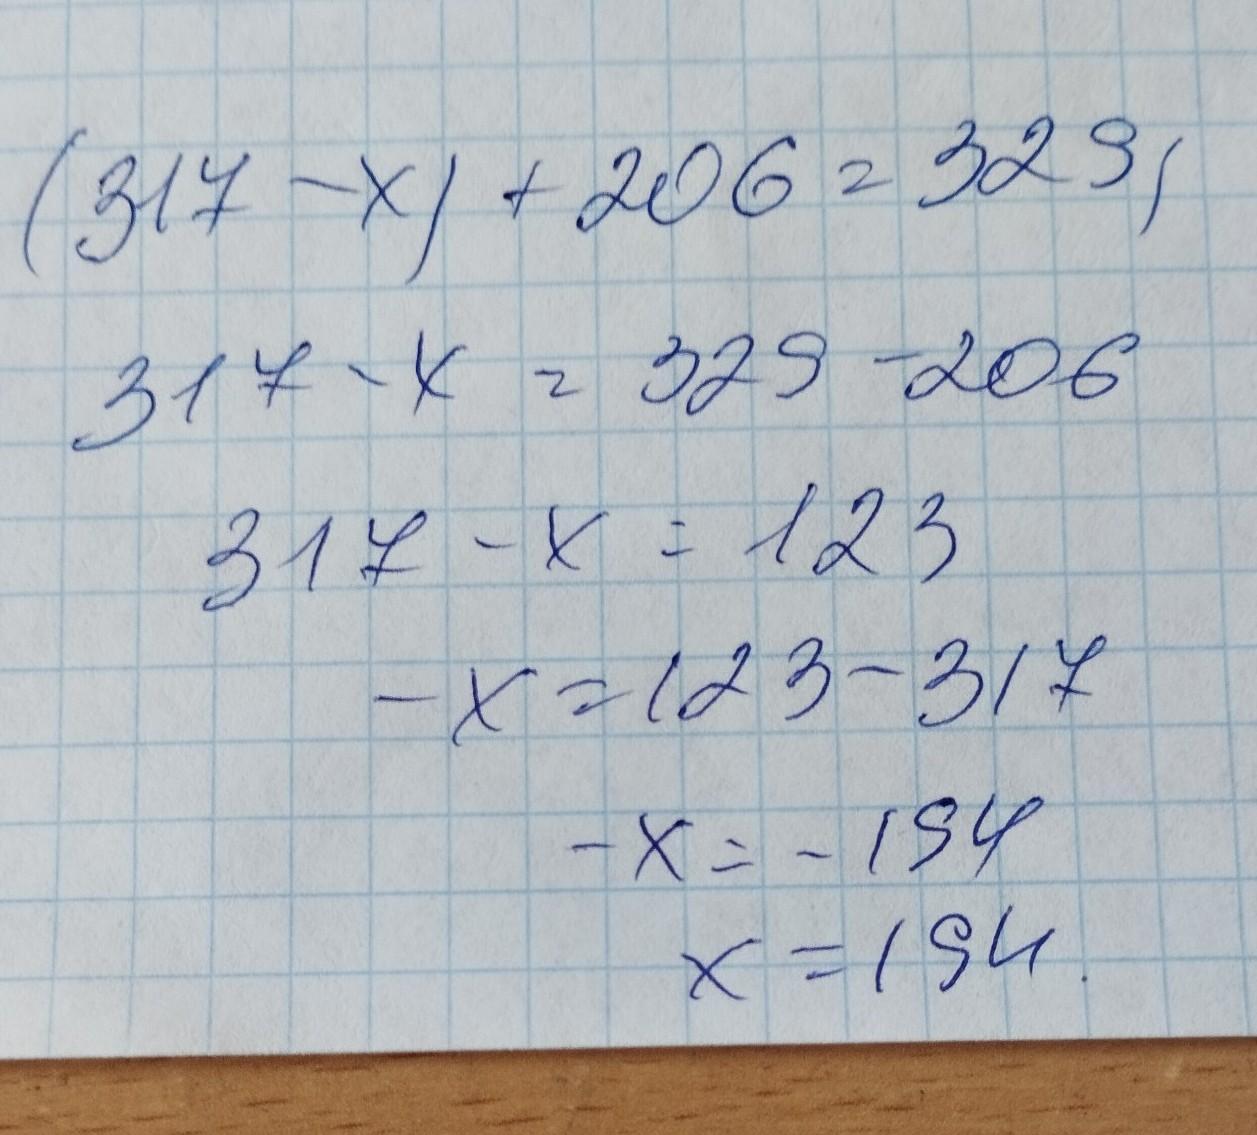 (317 - x) + 206 = 329,
317 - x = 329 - 206
317 - x = 123
- x = 123 - 317
- x = - 194
x = 194.